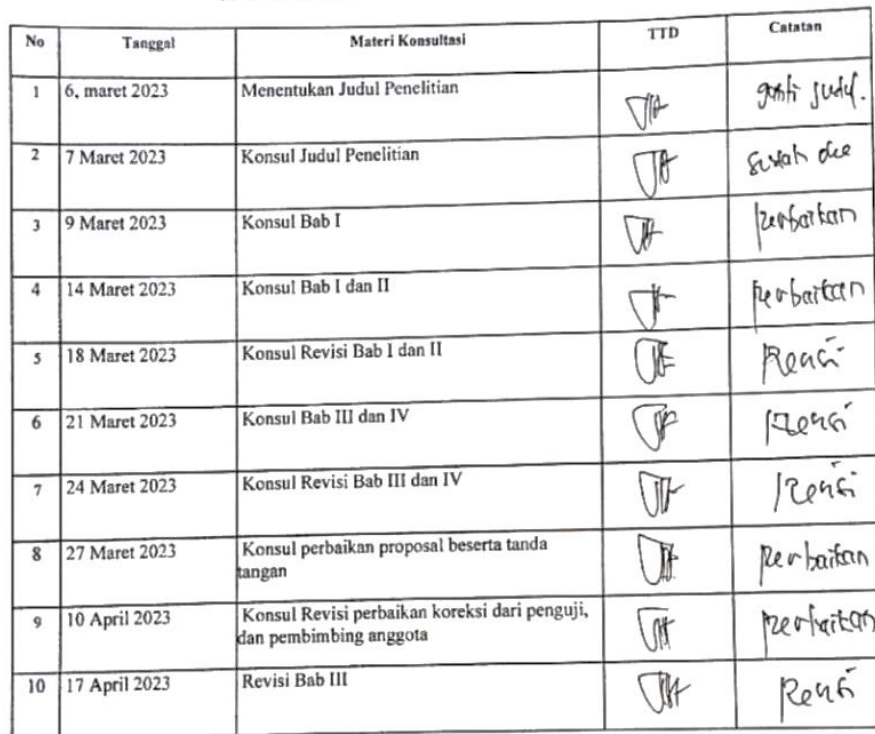 No Tanggal Materi Konsultasi TTD Catatan
1 6, maret 2023 Menentukan Judul Penelitian ganti judul.
2 7 Maret 2023 Konsul Judul Penelitian sudah
3 9 Maret 2023 Konsul Bab I perbaikan
4 14 Maret 2023 Konsul Bab I dan II perbaikan
5 18 Maret 2023 Konsul Revisi Bab I dan II Revisi
6 21 Maret 2023 Konsul Bab III dan IV Revisi
7 24 Maret 2023 Konsul Revisi Bab III dan IV Revisi
8 27 Maret 2023 Konsul perbaikan proposal beserta tanda perbaikan
tangan
9 10 April 2023 Konsul Revisi perbaikan koreksi dari penguji, perbaikan
dan pembimbing anggota
10 17 April 2023 Revisi Bab III Revisi